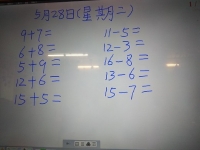 5月28日(星期二)
9+7=
6+8=
5+9=
12+6=
15+5=
11-5=
12-3=
16-8=
13-6=
15-7=